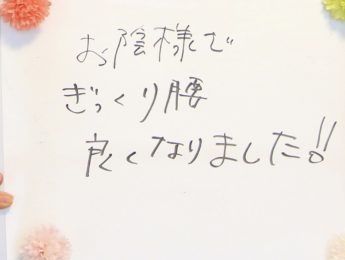 お陰様で
ぎっくり腰
良くなりました!!